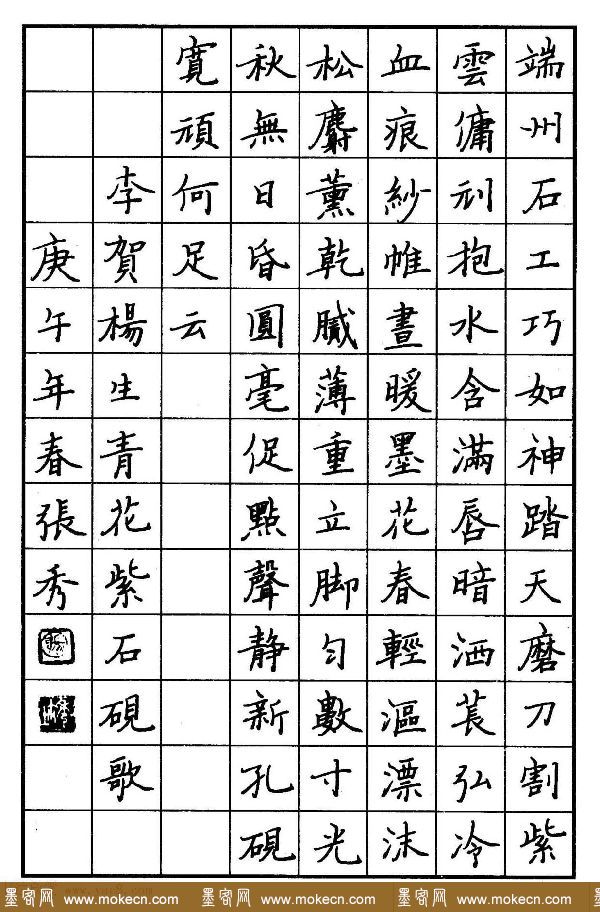 端州石工巧如神踏天磨刀割紫
雲傭刓抱水含滿唇暗洒萇弘冷
血痕紗帷晝暖墨花春輕漚漂沫
松麝薰乾膩薄重立脚匀數寸光
秋無日昏圓毫促點聲静新孔硯
寬頑何足云
李賀楊生青花紫石硯歌
庚午年春張秀
墨客网 www.mokecn.com 墨客网 www.mokecn.com 墨客网 www.mokecn.com